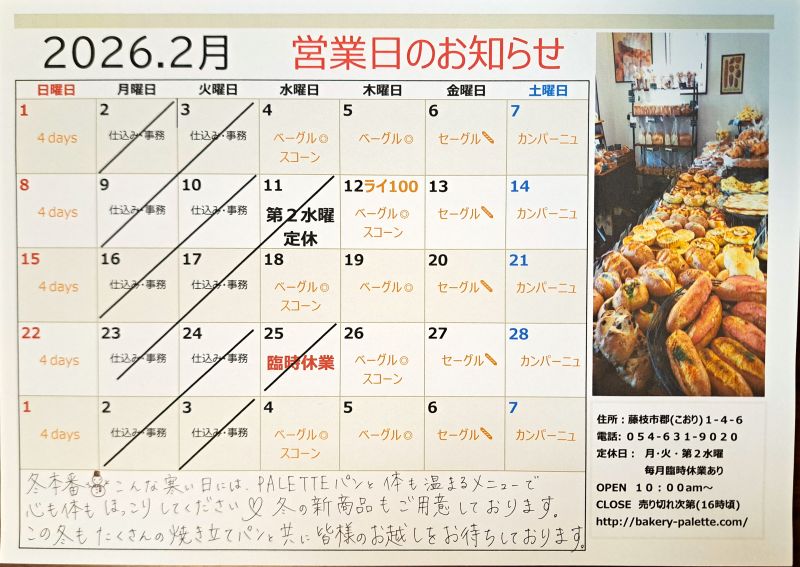 2026.2月 営業日のお知らせ
日曜日 月曜日 火曜日 水曜日 木曜日 金曜日 土曜日
1 2 3 4 5 6 7
4 days 仕込み・事務 仕込み・事務 ベーグル◎ ベーグル◎ セーグル🥖 カンパーニュ
スコーン
8 9 10 11 12ライ100 13 14
4 days 仕込み・事務 仕込み・事務 第2水曜 ベーグル◎ セーグル🥖 カンパーニュ
定休 スコーン
15 16 17 18 19 20 21
4 days 仕込み・事務 仕込み・事務 ベーグル◎ ベーグル◎ セーグル🥖 カンパーニュ
スコーン
22 23 24 25 26 27 28
4 days 仕込み・事務 仕込み・事務 臨時休業 ベーグル◎ セーグル🥖 カンパーニュ
スコーン
1 2 3 4 5 6 7
4 days 仕込み・事務 仕込み・事務 ベーグル◎ ベーグル◎ セーグル🥖 カンパーニュ
スコーン
冬本番⛄こんな寒い日には、PALETTEパンと体も温まるメニューで
心も体もほっこりしてください♡冬の新商品もご用意しております。
この冬もたくさんの焼き立てパンと共に皆様のお越しをお待ちしております。
住所:藤枝市郡(こおり)1-4-6
電話:054-631-9020
定休日: 月・火・第2水曜
毎月臨時休業あり
OPEN 10:00am~
CLOSE 売り切れ次第(16時頃)
http://bakery-palette.com/